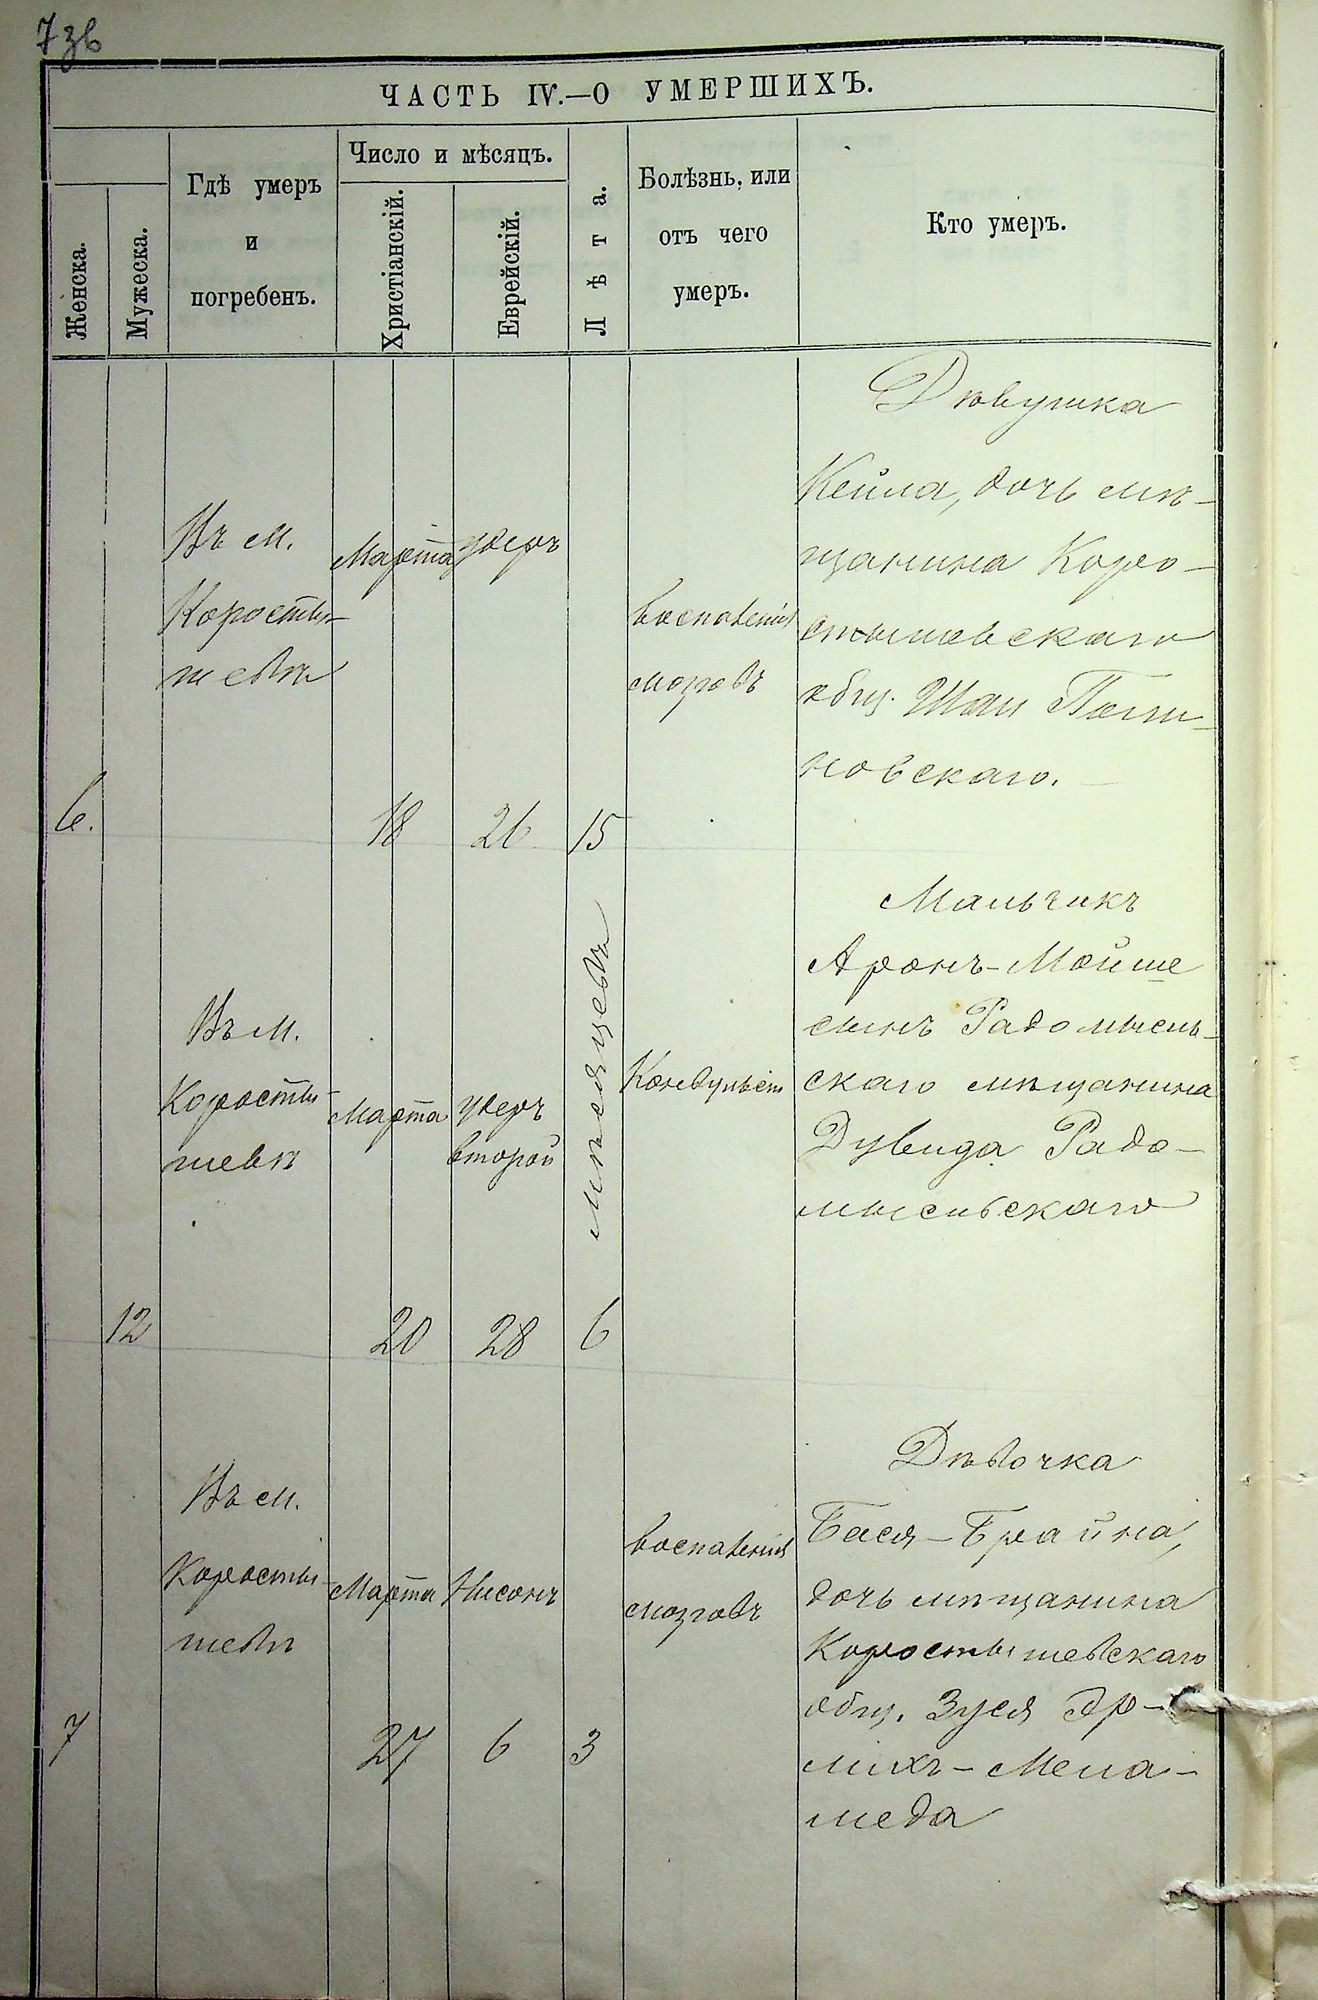 7зв
ЧАСТЬ IV.—О УМЕРШИХЪ.
Женска.
Мужеска.
Гдѣ умеръ
и
погребенъ.
Число и мѣсяцъ.
Христіанскій.
Еврейскій.
Лѣта.
Болѣзнь, или
отъ чего
умеръ.
Кто умеръ.
6.
Въ м.
Коросты-
шевѣ
Марта
18
26
15
воспаленія
мозговъ
Дѣвушка
Кейла, дочь мѣ-
щанина Коро-
стышевскаго
общ. Шаи
новскаго.
12
Въ м.
Коросты-
шевѣ
Марта
20
второй
28
мѣсяцевъ
6
Мальчикъ
Аронъ-Мойше
сынъ Радомысль-
скаго мѣщанина
Дувида Радо-
мысльскаго
7
Въ м.
Коросты-
шевѣ
Марта
27
Нисонъ
6
3
воспаленія
мозговъ
Дѣвочка
Бася-Брайна,
дочь мѣщанина
Коростышевскаго
общ. Зуся Эр-
лихъ-Мела-
меда